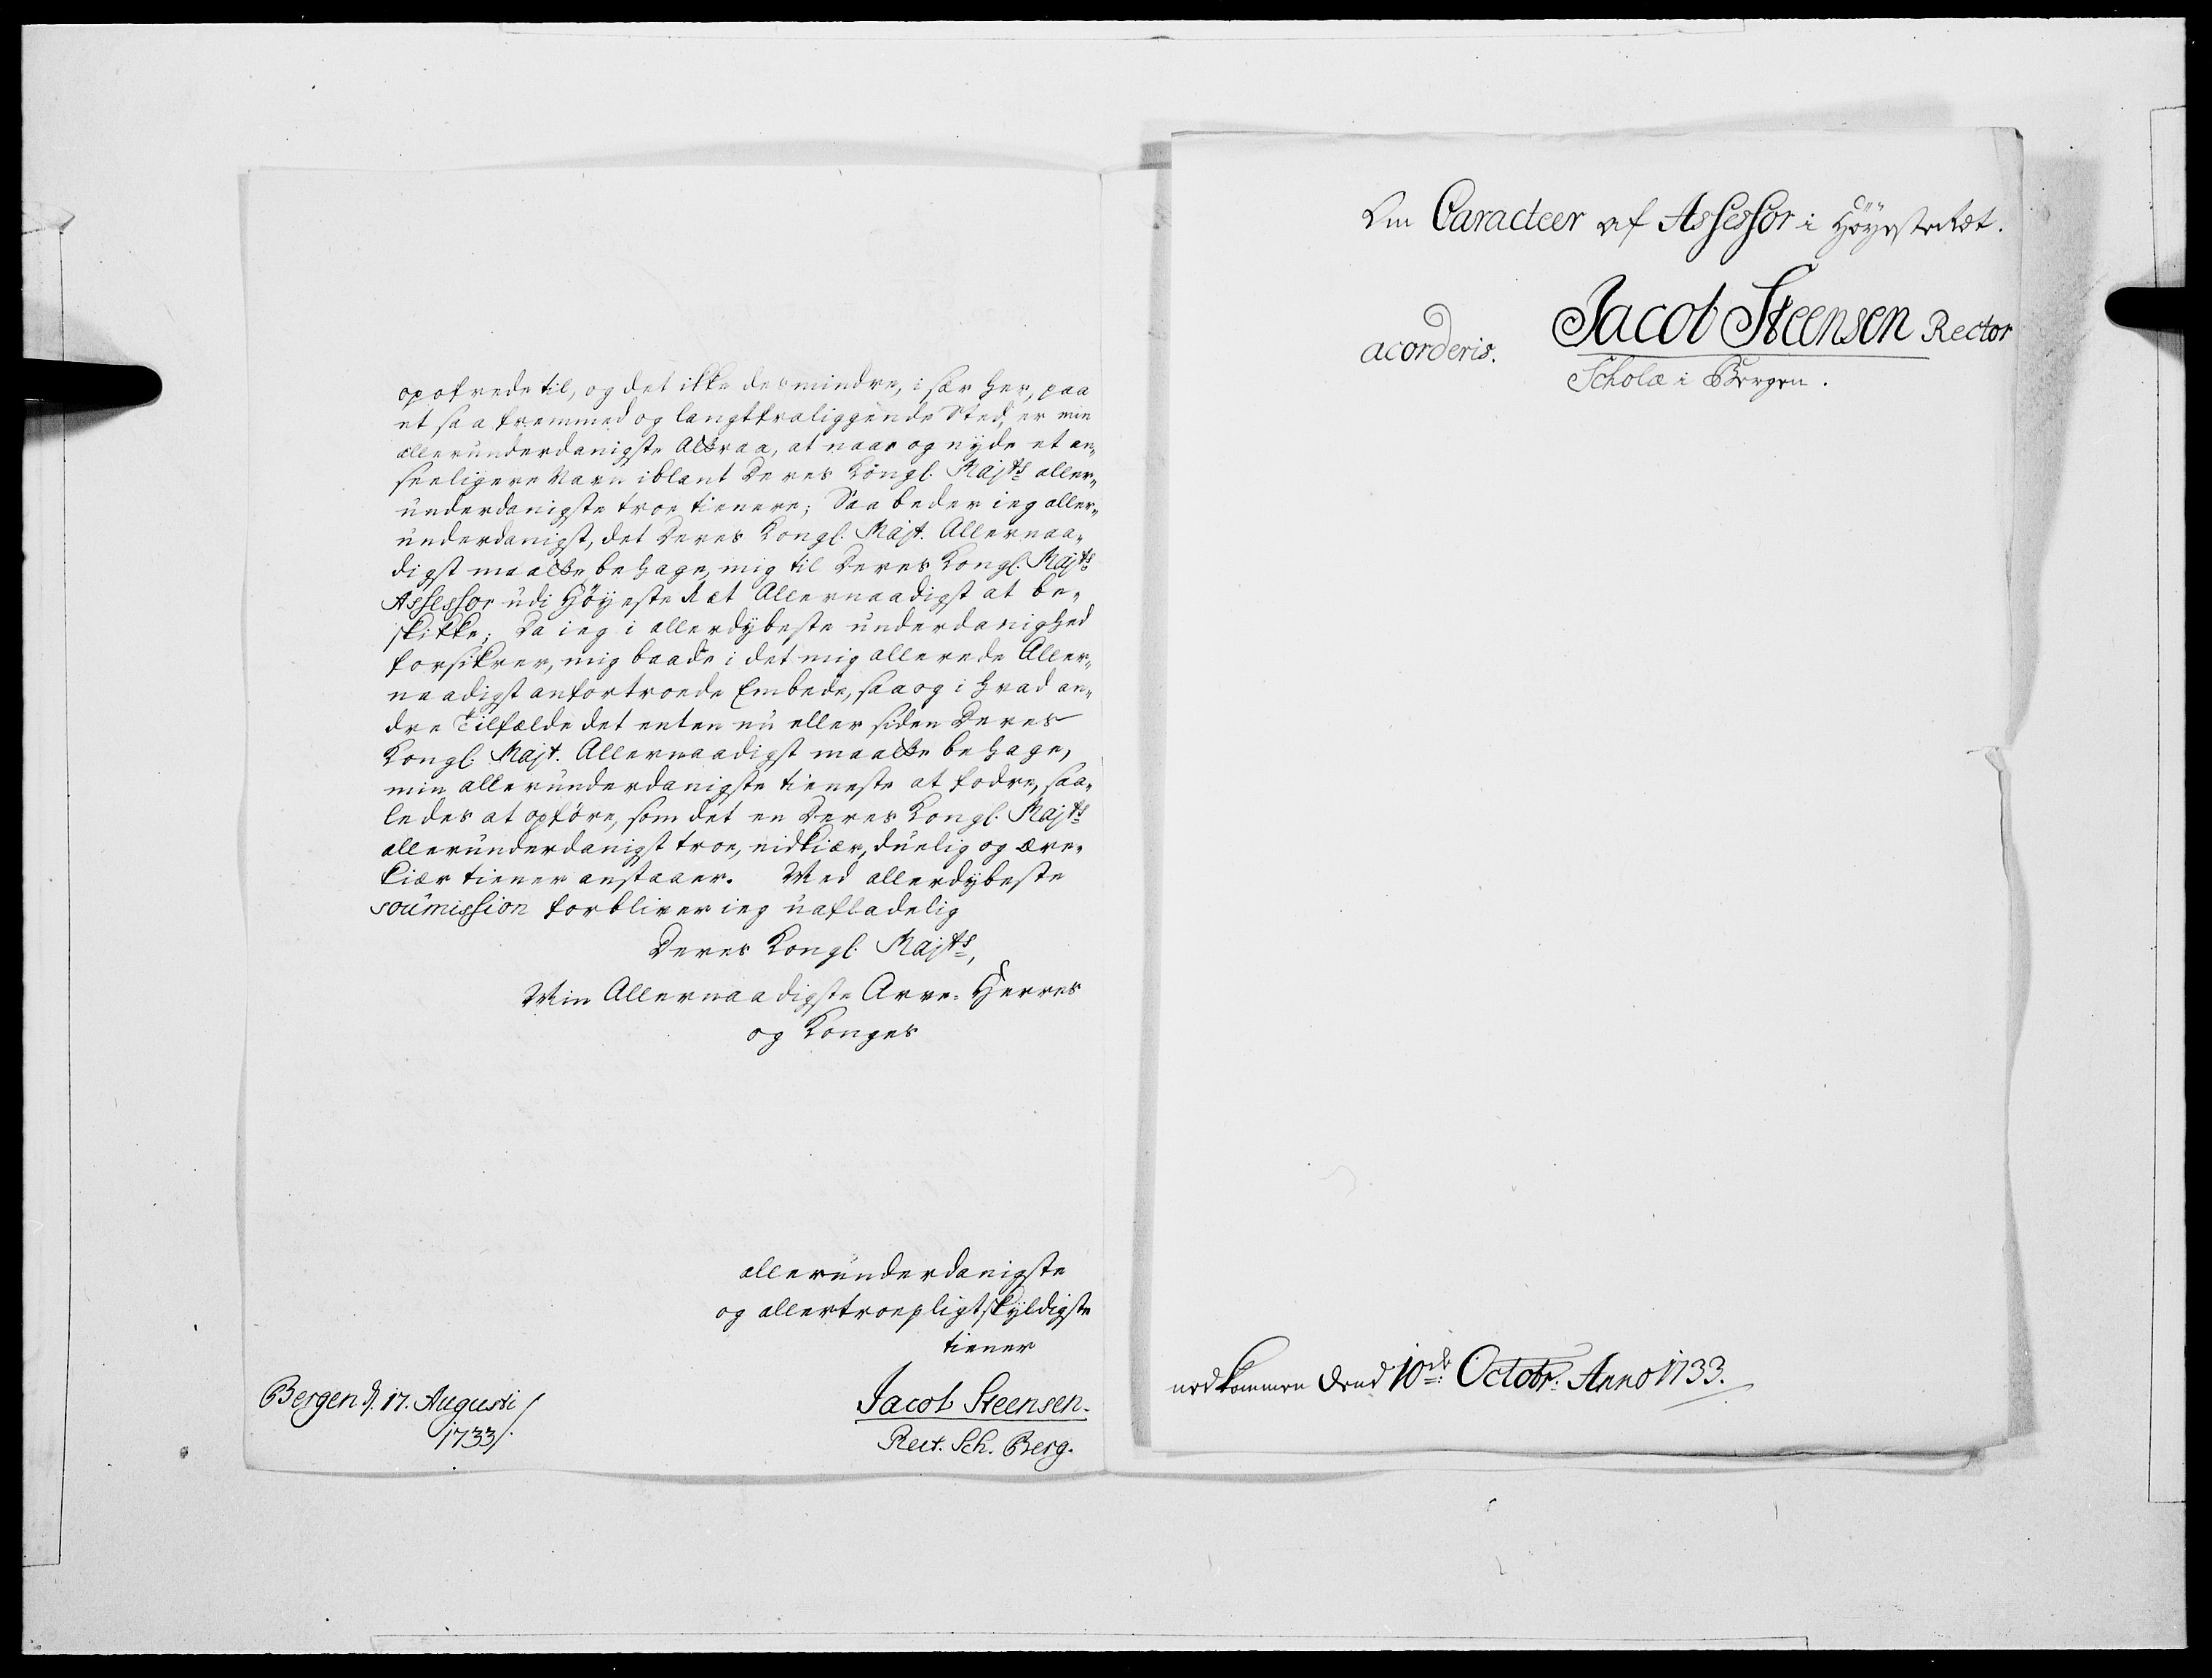 opofrede til, og det ikke desmindre, i sær her, paa
et saa fremmed og langtfraliggende Sted, er min
allerunderdanigste Attraa, at naae og nyde et an-
seeligere Navn iblant Deres Kongl. Majts aller-
underdanigste troe tienere; Saa beder ieg aller-
underdanigst, det Deres Kongl. Majt. Allernaa-
digst maatte behage, mig til Deres Kongl. Majts
Assessor udi Høyeste Ræt Allernaadigst at be-
skikke; Da ieg i allerdybeste underdanighed
forsikrer, mig baade i det mig allerede Aller-
naadigst anfortroede Embede, saa og i hvad an-
dre Tilfælde det enten nu eller siden Deres
Kongl. Majt. Allernaadigst maatte behage,
min allerunderdanigste tieneste at fodre, saa-
ledes at opføre, som det en Deres Kongl. Majts
allerunderdanigst troe, nidkiær, duelig og ære-
kiær tiener anstaaer. Med allerdybeste
soumission forbliver ieg uafladelig
Deres Kongl. Majts,
Min Allernaadigste Arve-Herres
og Konges
allerunderdanigste
og allertroepligtskyldigste
tiener
Jacob Steensen.
Rect. Sch. Berg.
Bergen d. 17. Augusti
1733.
Om Caracteer af Assessor i Høyeste Ræt.
acorderis.
Jacob Steensen Rector
Scholæ i Bergen.
nedkommen dend 10de Octobr. Anno 1733.